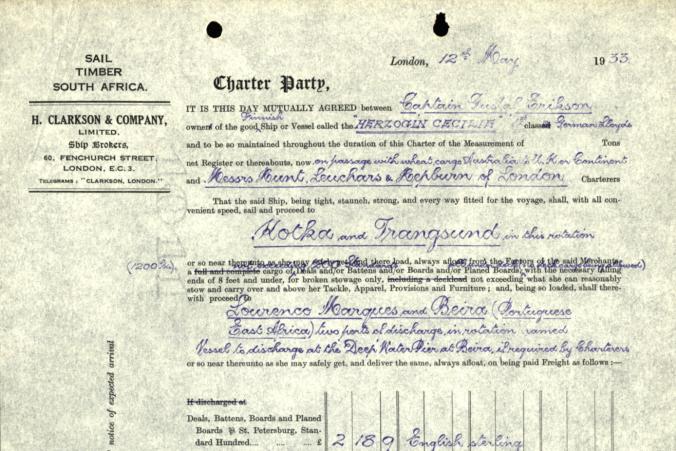 London, 12th May 1933.
SAIL
TIMBER
SOUTH AFRICA.
H. CLARKSON & COMPANY,
LIMITED.
Ship Brokers,
60, FENCHURCH STREET,
LONDON, E.C. 3.
TELEGRAMS: "CLARKSON, LONDON."
Charter Party,
IT IS THIS DAY MUTUALLY AGREED between Captain Gustaf Erikson
owner of the good Finnish Ship or Vessel called the "HERZOGIN CECILIE" classed German Lloyds
and to be so maintained throughout the duration of this Charter of the Measurement of Tons
net Register or thereabouts, now on passage with wheat cargo Australia to U.K. or Continent
and Messrs Hunt, Leuchars & Hepburn of London Charterers
That the said Ship, being tight, staunch, strong, and every way fitted for the voyage, shall, with all con-
venient speed, sail and proceed to
Kotka and Trangsund in this rotation
or so near thereunto as she may safely get, and there load, always afloat, from the Factors of the said Merchants
a full and complete cargo of Deals and/or Battens and/or Boards and/or Planed Boards, with the necessary
ends of 8 feet and under, for broken stowage only, including a deckload not exceeding what she can reasonably
stow and carry over and above her Tackle, Apparel, Provisions and Furniture; and, being so loaded, shall there-
with proceed to
Lourenco Marques and Beira (Portuguese
East Africa) two ports of discharge, in rotation named
Vessel to discharge at the Deep Water Pier at Beira, if required by Charterers
or so near thereunto as she may safely get, and deliver the same, always afloat, on being paid Freight as follows:—
notice of expected arrival
If discharged at
Deals, Battens, Boards and Planed
Boards St. Petersburg, Stan-
dard Hundred.... .... .... £ 2 18 9 English sterling